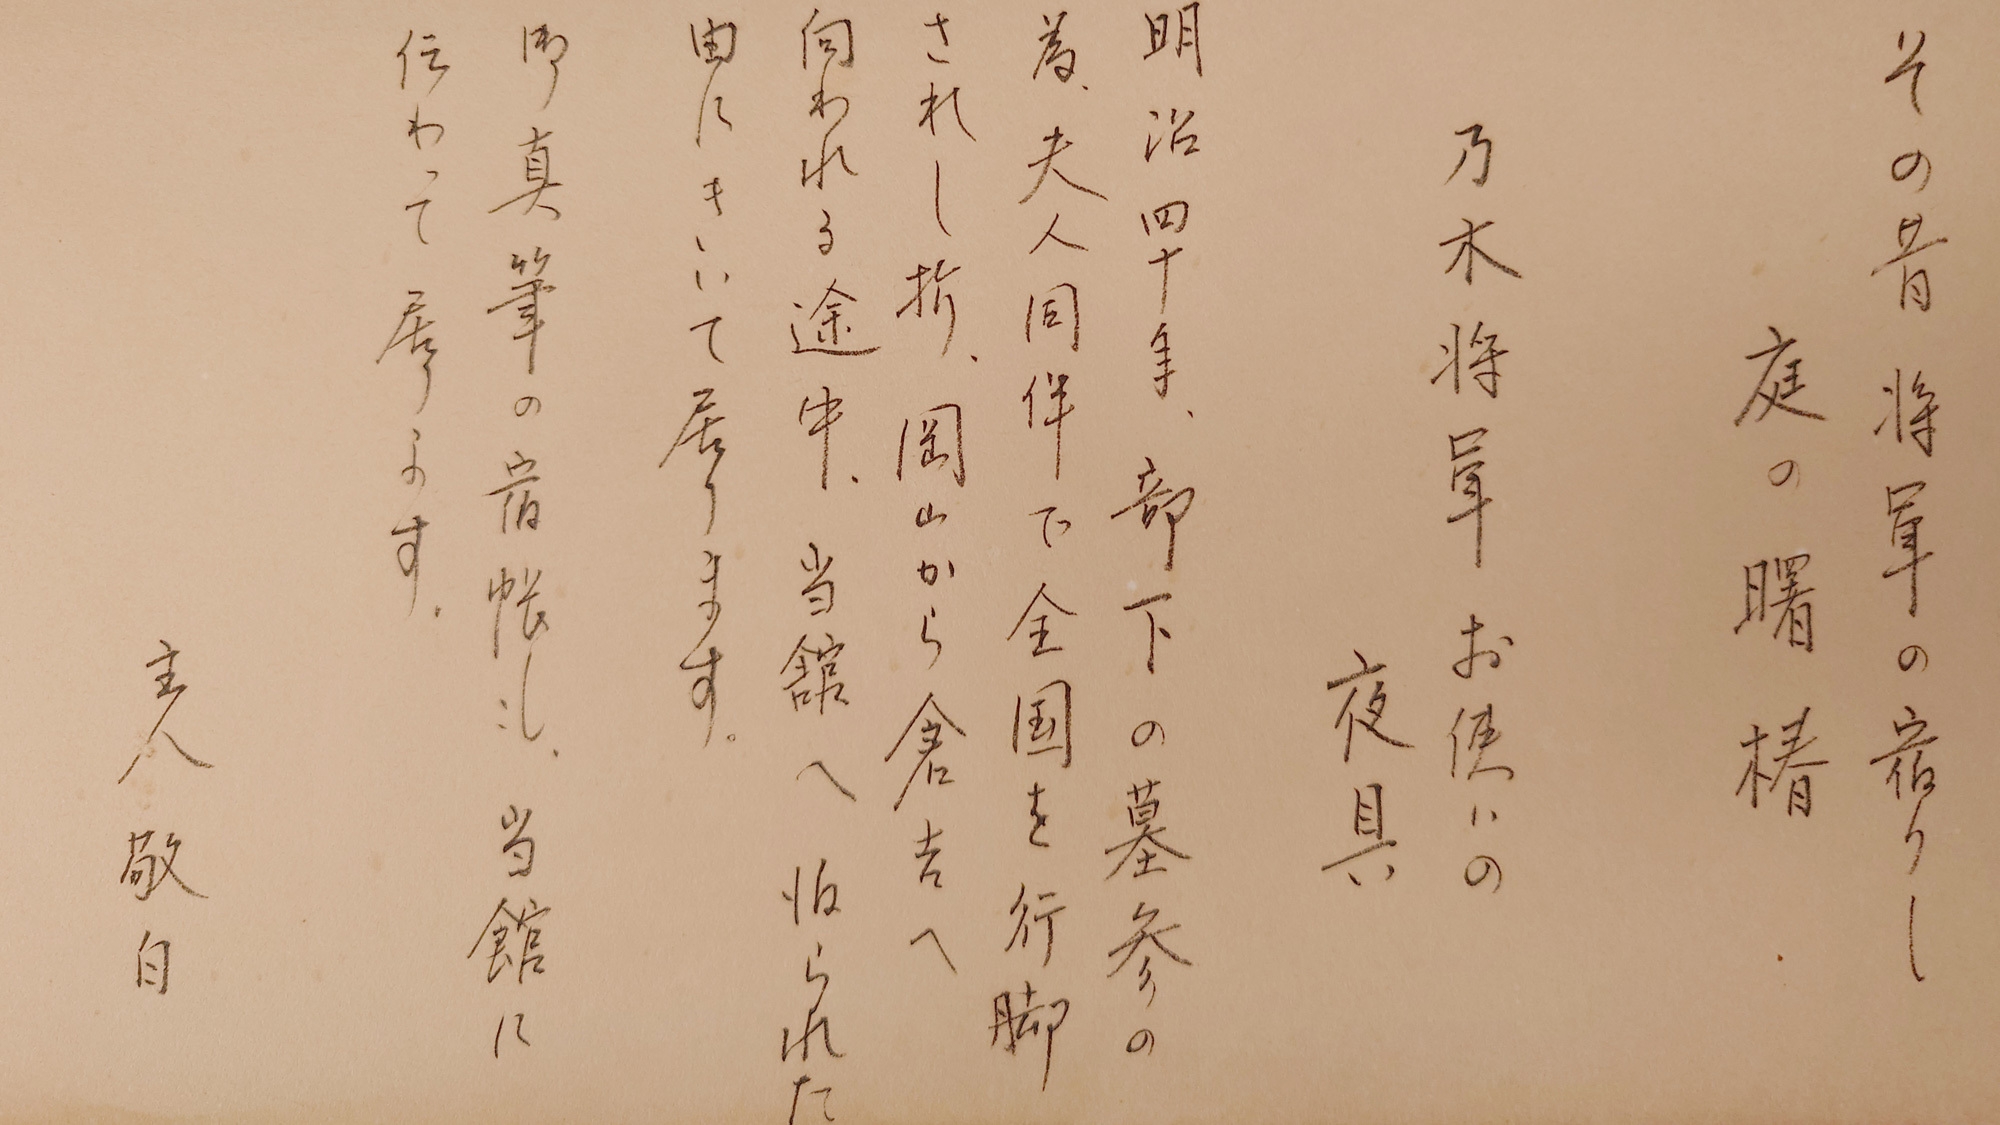 その昔将軍の宿りし
庭の曙椿
乃木将軍お使いの
夜具
明治四十年、部下の墓参の
為、夫人同伴で全国を行脚
されし折、岡山から倉吉へ
向われる途中、当舘へ泊られた
由にきいて居ります。
御真筆の宿帳も、当館に
伝わって居ります。
主人敬白